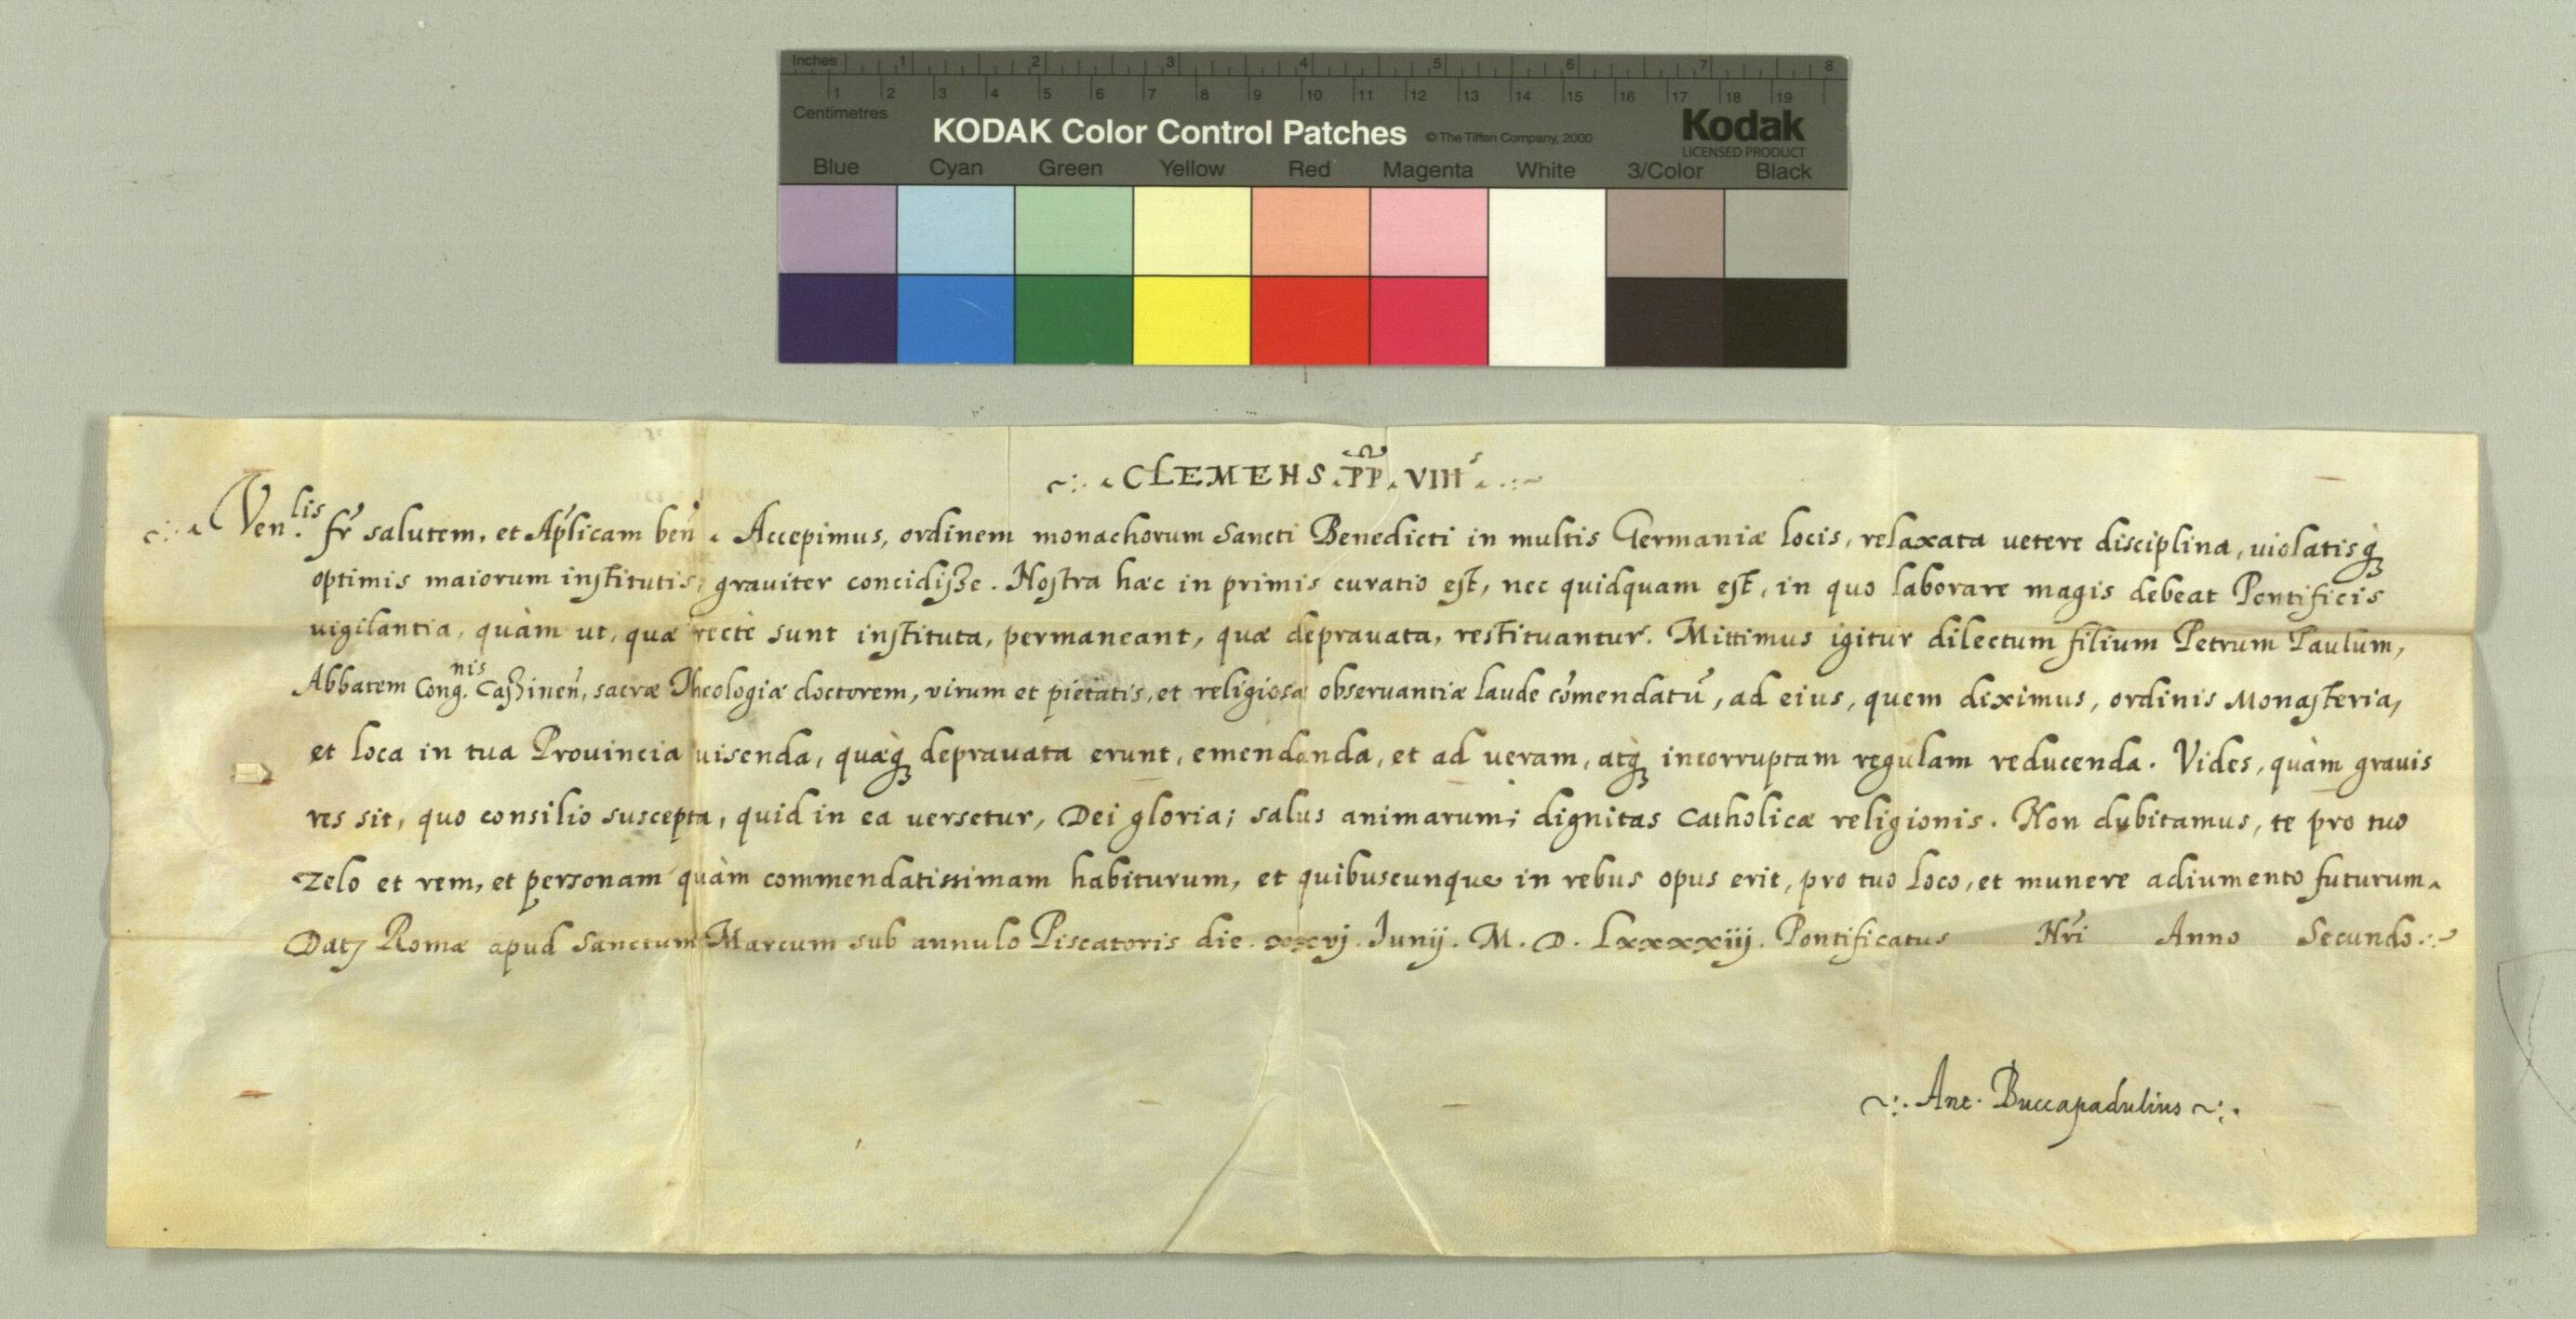 Inches 1 2 3 4 5 6 7 8
1 2 3 4 5 6 7 8 9 10 11 12 13 14 15 16 17 18 19
Centimetres
KODAK Color Control Patches © The Tiffen Company, 2000 Kodak
LICENSED PRODUCT
Blue Cyan Green Yellow Red Magenta White 3/Color Black
CLEMENS PP VIIIs
Ven.lis fr̃ salutem, et Ap̃licam beñ. Accepimus, ordinem monachorum Sancti Benedicti in multis Germaniæ locis, relaxata uetere disciplina, uiolatisq̀ꝫ
optimis maiorum institutis, grauiter concidiße. Nostra hæc in primis curatio est, nec quidquam est, in quo laborare magis debeat Pontificis
uigilantia, quàm ut, quæ rectè sunt instituta, permaneant, quæ deprauata, restituantur. Mittimus igitur dilectum filium Petrum Paulum,
Abbatem Cong.nis Caßineñ, sacræ Theologiæ doctorem, virum et pietatis, et religiosæ obseruantiæ laude cõmendatũ, ad eius, quem diximus, ordinis Monasteria,
et loca in tua Prouincia uisenda, quæq̀ꝫ deprauata erunt, emendanda, et ad ueram, atq̀ꝫ incorruptam regulam reducenda. Vides, quàm grauis
res sit, quo consilio suscepta, quid in ea uersetur, Dei gloria; salus animarum; dignitas Catholicæ religionis. Non dubitamus, te pro tuo
zelo et rem, et personam quàm commendatissimam habiturum, et quibuscunque in rebus opus erit, pro tuo loco, et munere adiumento futurum.
Datꝫ Romæ apud Sanctum Marcum sub annulo Piscatoris die. xxvj. Junij. M. D. Lxxxxiij. Pontificatus Nr̃i Anno Secundo.
Ant. Buccapadulius